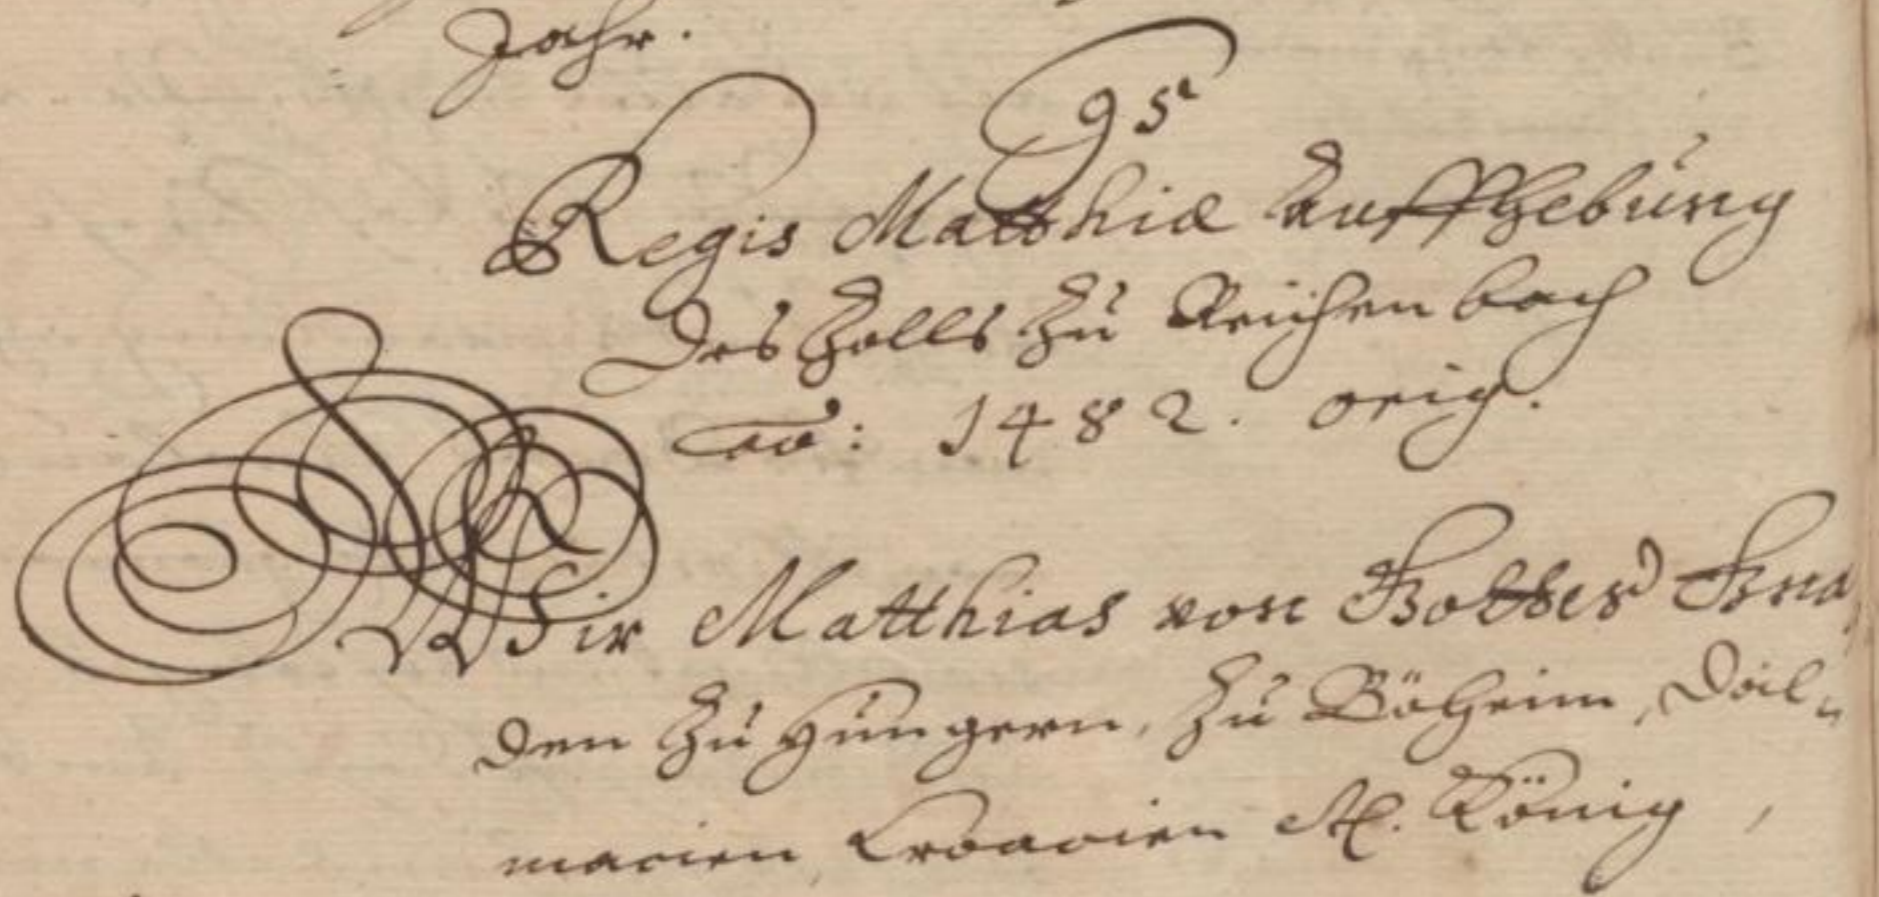 Jahr.
95
Regis Matthiæ Auffhebung
des Zolls zu Reichenbach
ao: 1482. orig.
Wir Matthias von Gottes Gna„
den zu Hungern, zu Böheim, Dal„
macien, Croacien etc. König,